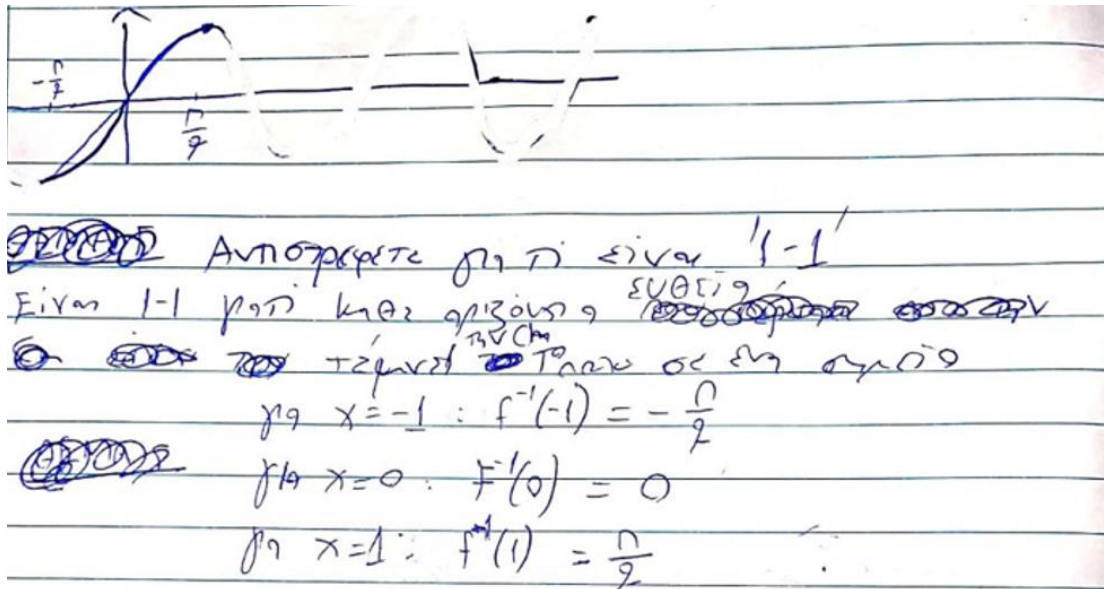 -π/2
π/2
Αντιστρεφετε γιατι ειναι '1-1'
Ειναι 1-1 γιατι καθε οριζόντια ευθεια
την Cf τέμνει το πολυ σε ένα σημείο
για x=-1 : f⁻¹(-1) = -π/2
για x=0 : F⁻¹(0) = 0
για x=1 : f⁻¹(1) = π/2